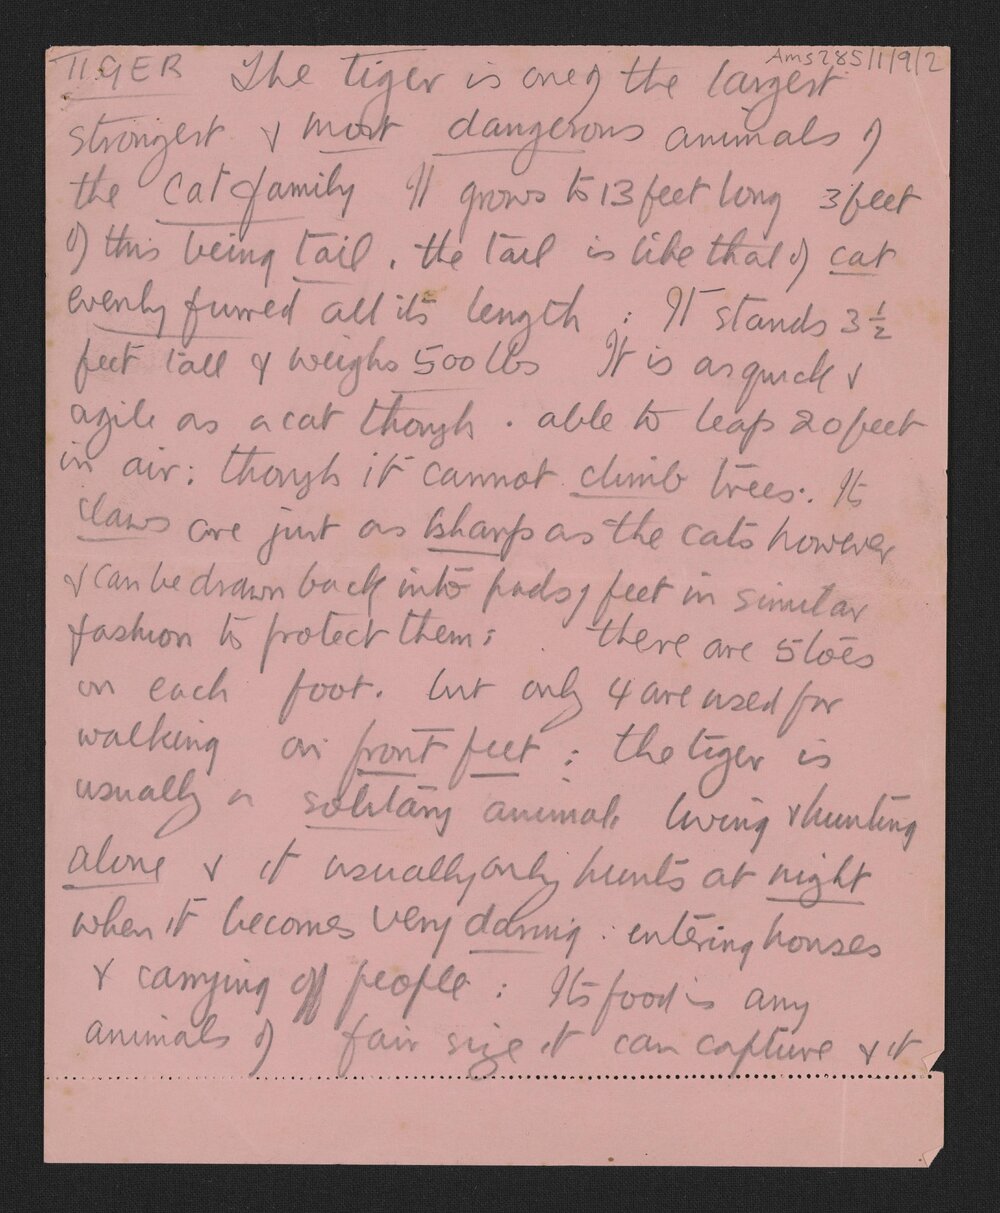 Ams285/1/9/2
TIGER The tiger is one of the largest
strongest & most dangerous animals of
the cat family It grows to 13 feet long 3 feet
of this being tail. the tail is like that of cat
evenly furred all its length : It stands 3 ½
feet tall & weighs 500 lbs It is as quick &
agile as a cat though. able to leap 20 feet
in air: though it cannot climb trees. Its
claws are just as sharp as the cats however
& can be drawn back into pads of feet in similar
fashion to protect them: there are 5 toes
on each foot. but only 4 are used for
walking on front feet : the tiger is
usually a solitary animal. living & hunting
alone & it usually only hunts at night
when it becomes very daring : entering houses
& carrying off people : Its food is any
animals of fair size it can capture & it